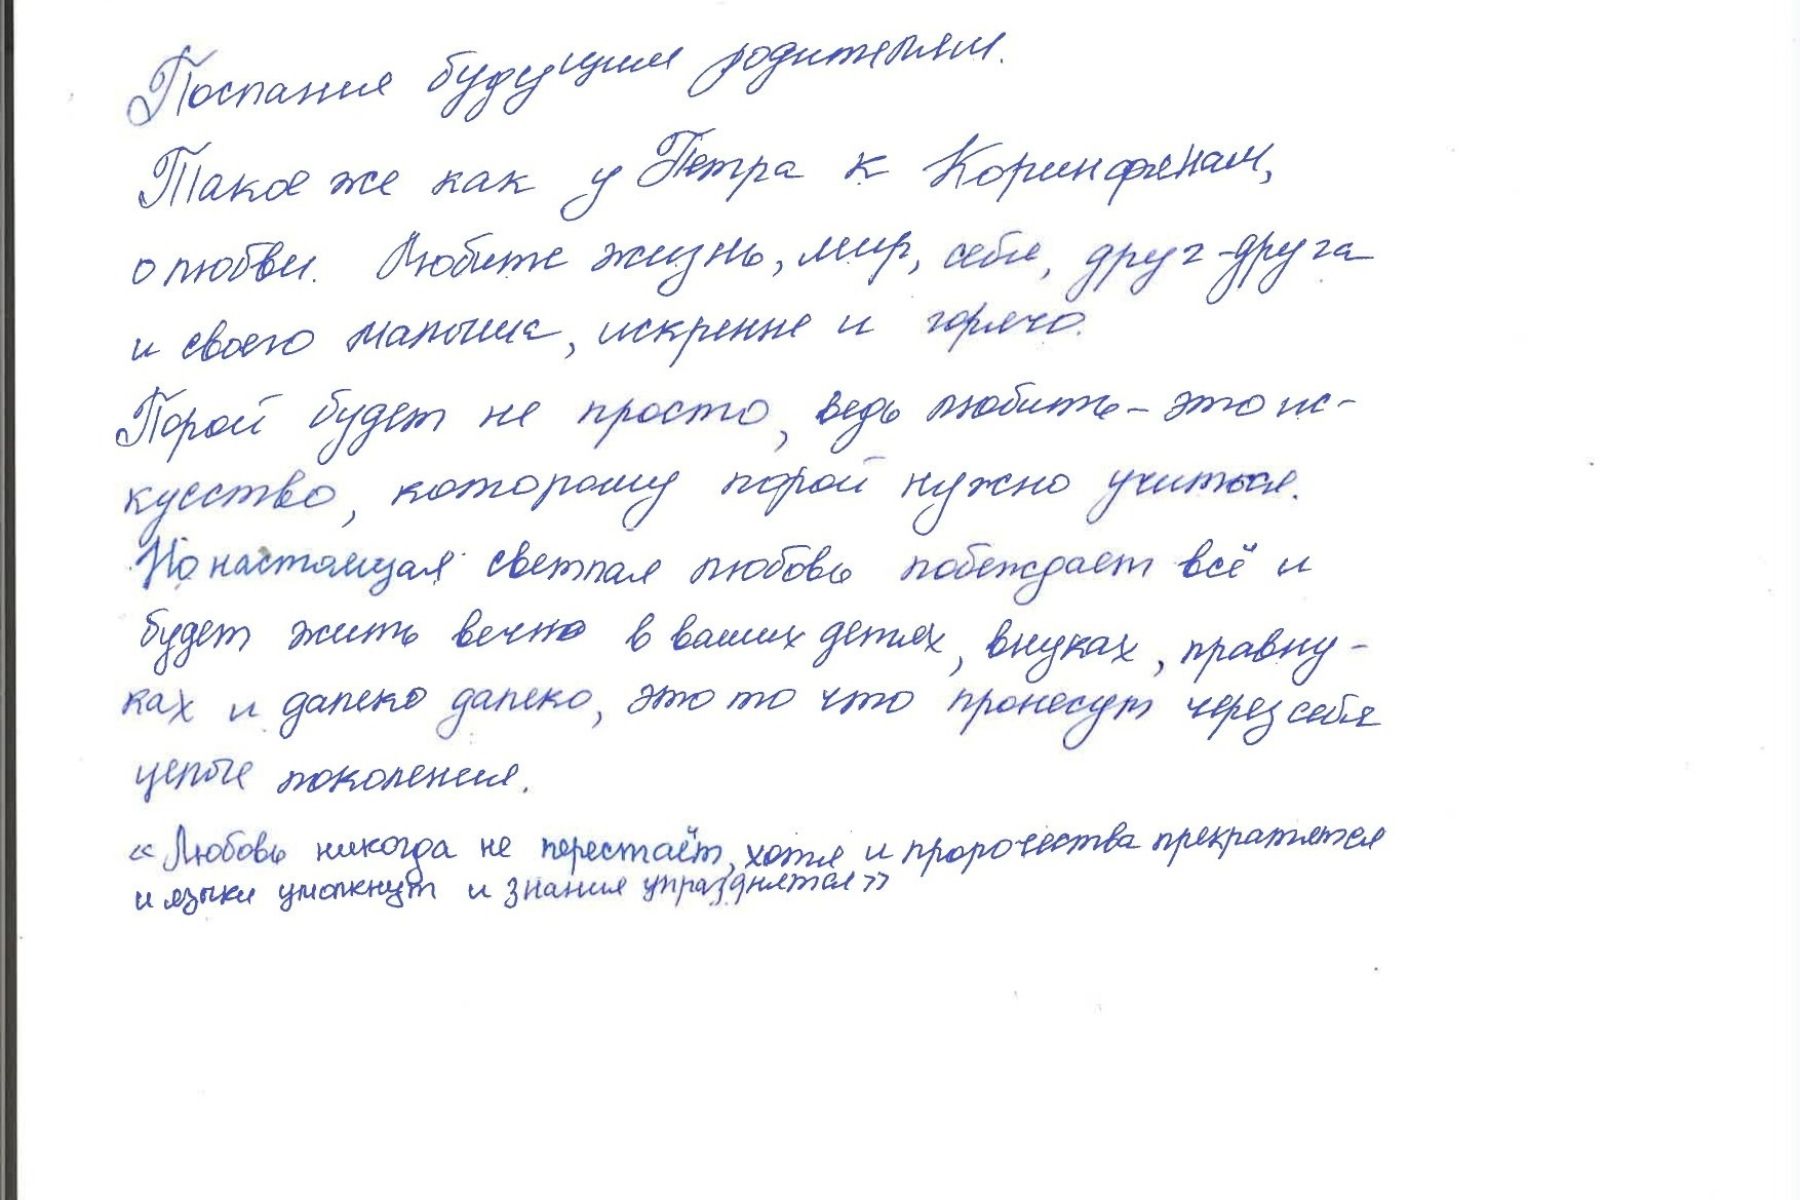 Послания будущим родителям.
Такое же как у Петра к Коринфянам,
о любви. Любите жизнь, мир, себя, друг-друга
и своего малыша, искренне и горячо.
Порой будет не просто, ведь любить - это ис-
кусство, которому порой нужно учиться.
Но настоящая светлая любовь побеждает всё и
будет жить вечно в ваших детях, внуках, правну-
ках и далеко далеко, это то что пронесут через себя
целые поколения.
«Любовь никогда не перестаёт, хотя и пророчества прекратятся
и языки умолкнут и знания упразднятся»